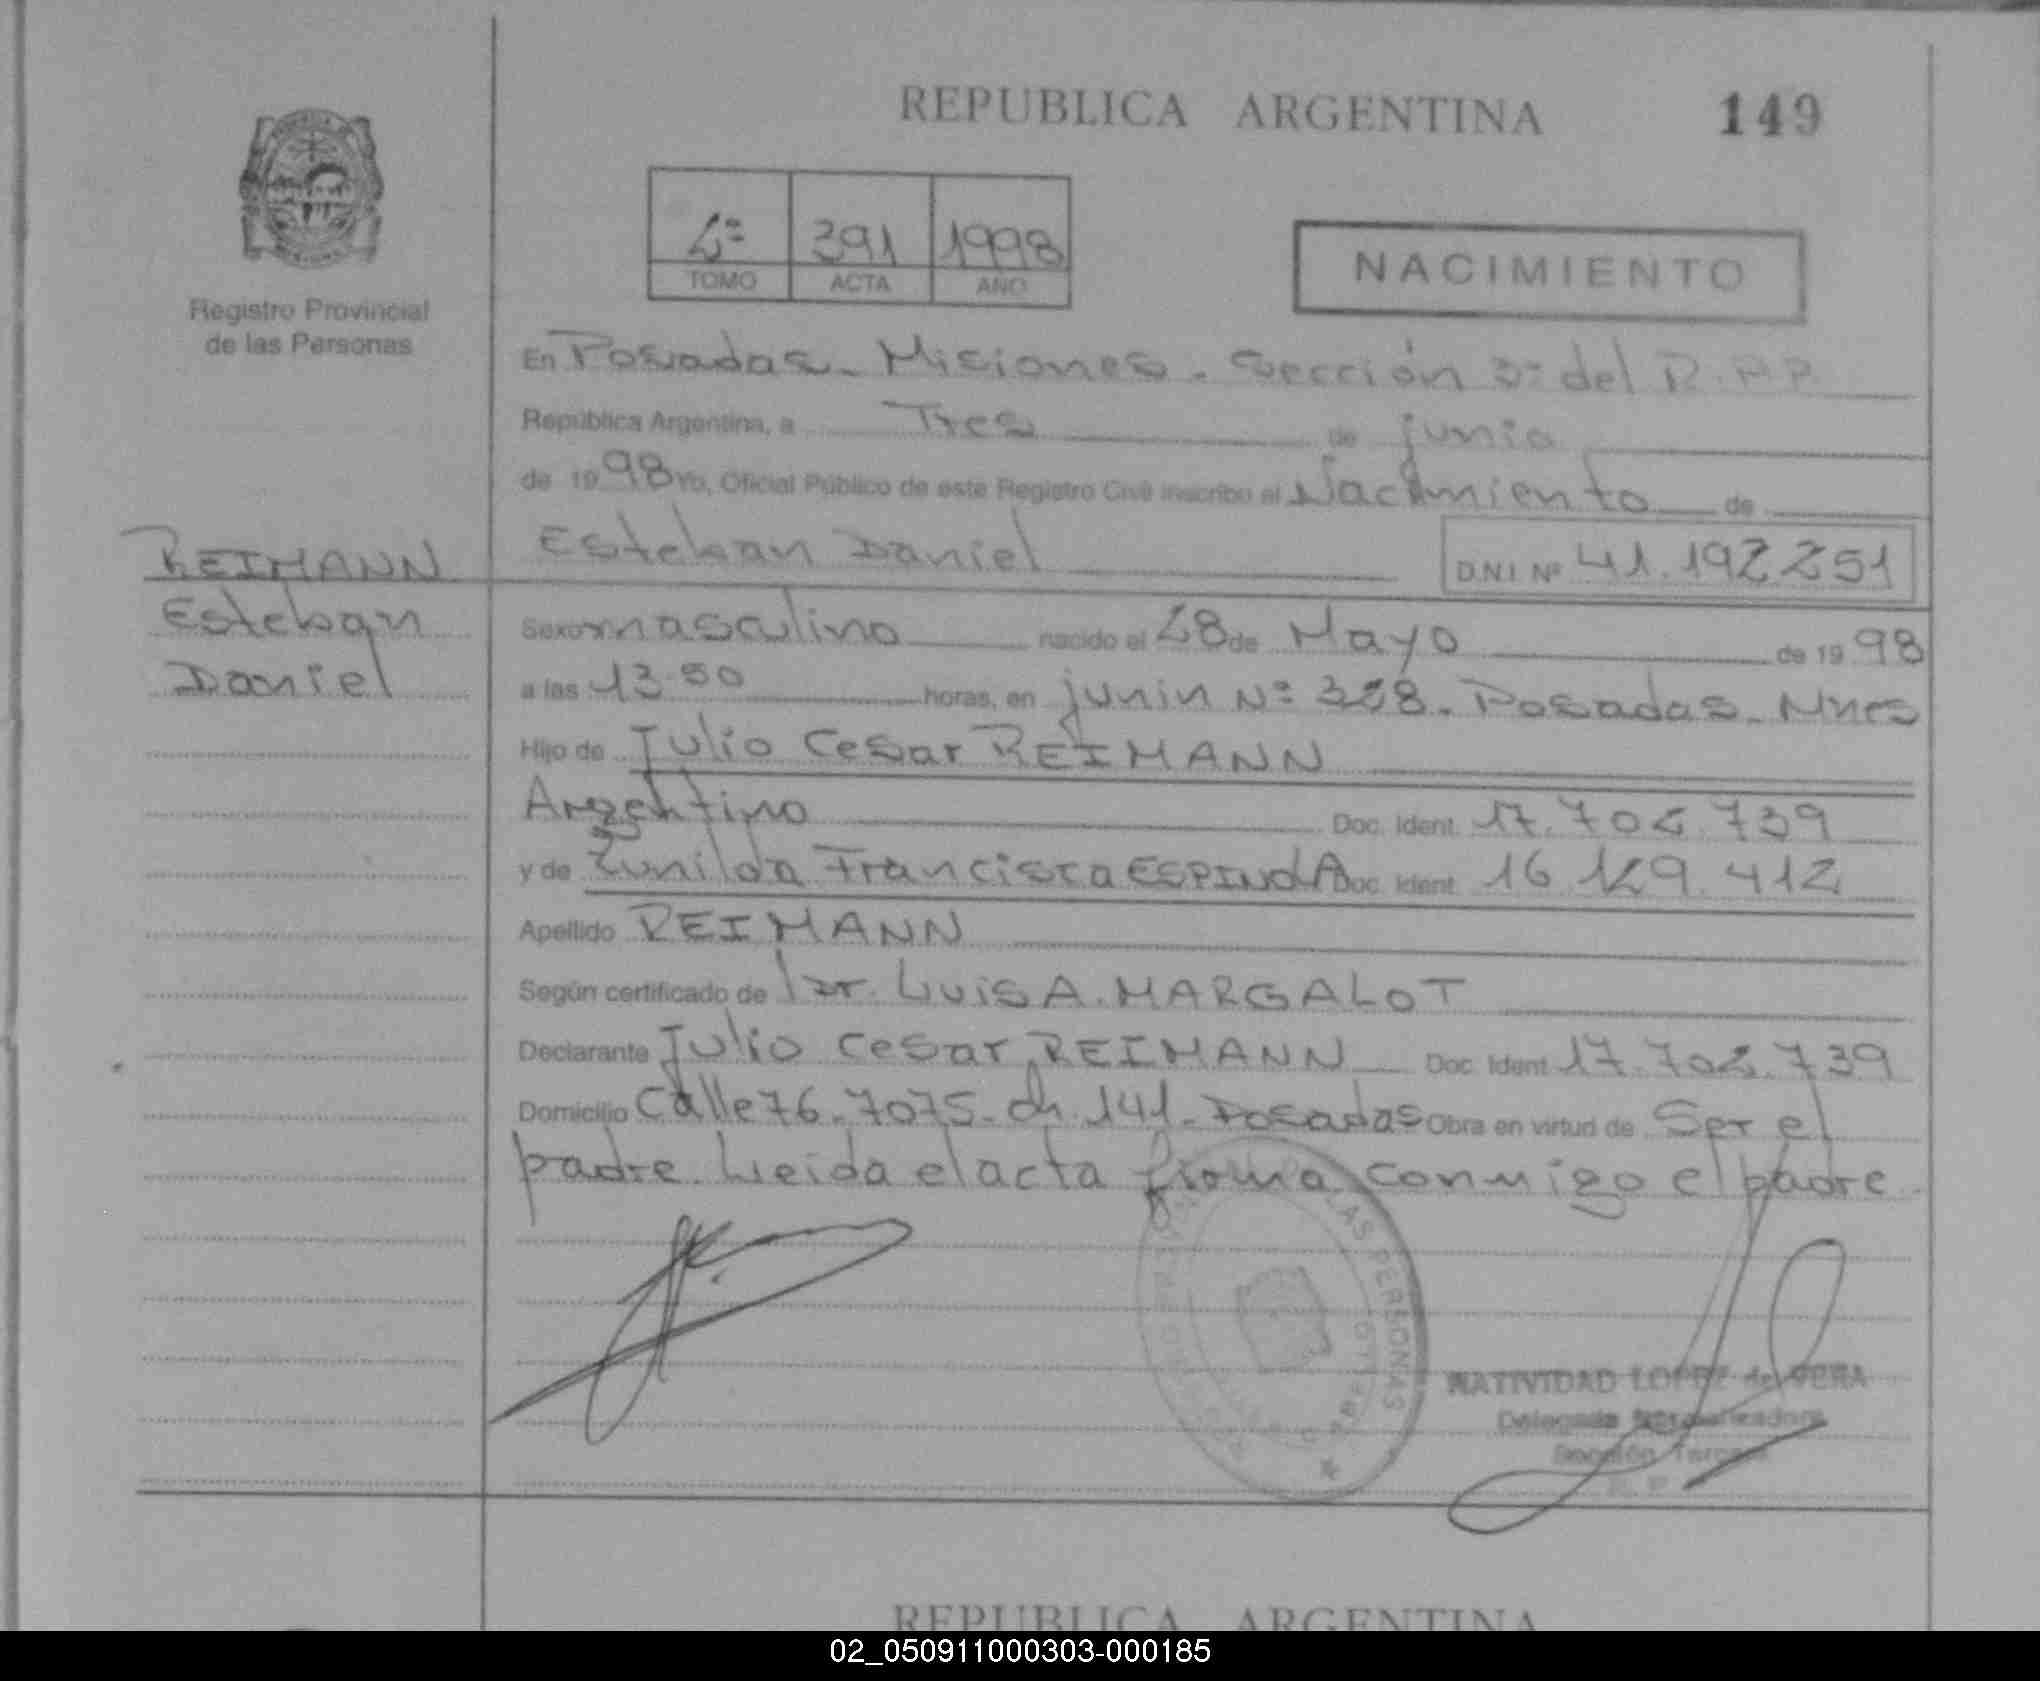 REPUBLICA ARGENTINA
149
2º 391 1998
TOMO ACTA AÑO
NACIMIENTO
Registro Provincial
de las Personas
En Posadas - Misiones - Sección 3º del R.P.P.
República Argentina, a Tres de junio
de 1998 Yo, Oficial Público de este Registro Civil inscribo el Nacimiento de
Esteban Daniel D.N.I Nº 41.192.251
REIMANN
Esteban
Daniel
Sexo masculino nacido el 28 de Mayo de 1998
a las 13.50 horas, en junin Nº Posadas - Mnes
Hijo de Julio Cesar REIMANN
Argentino Doc. Ident. 17.702.739
y de Zunilda Francisca ESPINDOLA Doc. Ident. 16.129.412
Apellido REIMANN
Según certificado de Dr. LUIS A. MARGALOT
Declarante Julio Cesar REIMANN Doc. Ident 17.702.739
Domicilio Calle 76 - 7075 - ch. 141 - Posadas Obra en virtud de Ser el
padre. Leida el acta firma conmigo el padre
LAS PERSONAS
NATIVIDAD LOPEZ de VERA
Delegada Normalizadora
Sección Tercera
REPUBLICA ARGENTINA
02_050911000303-000185